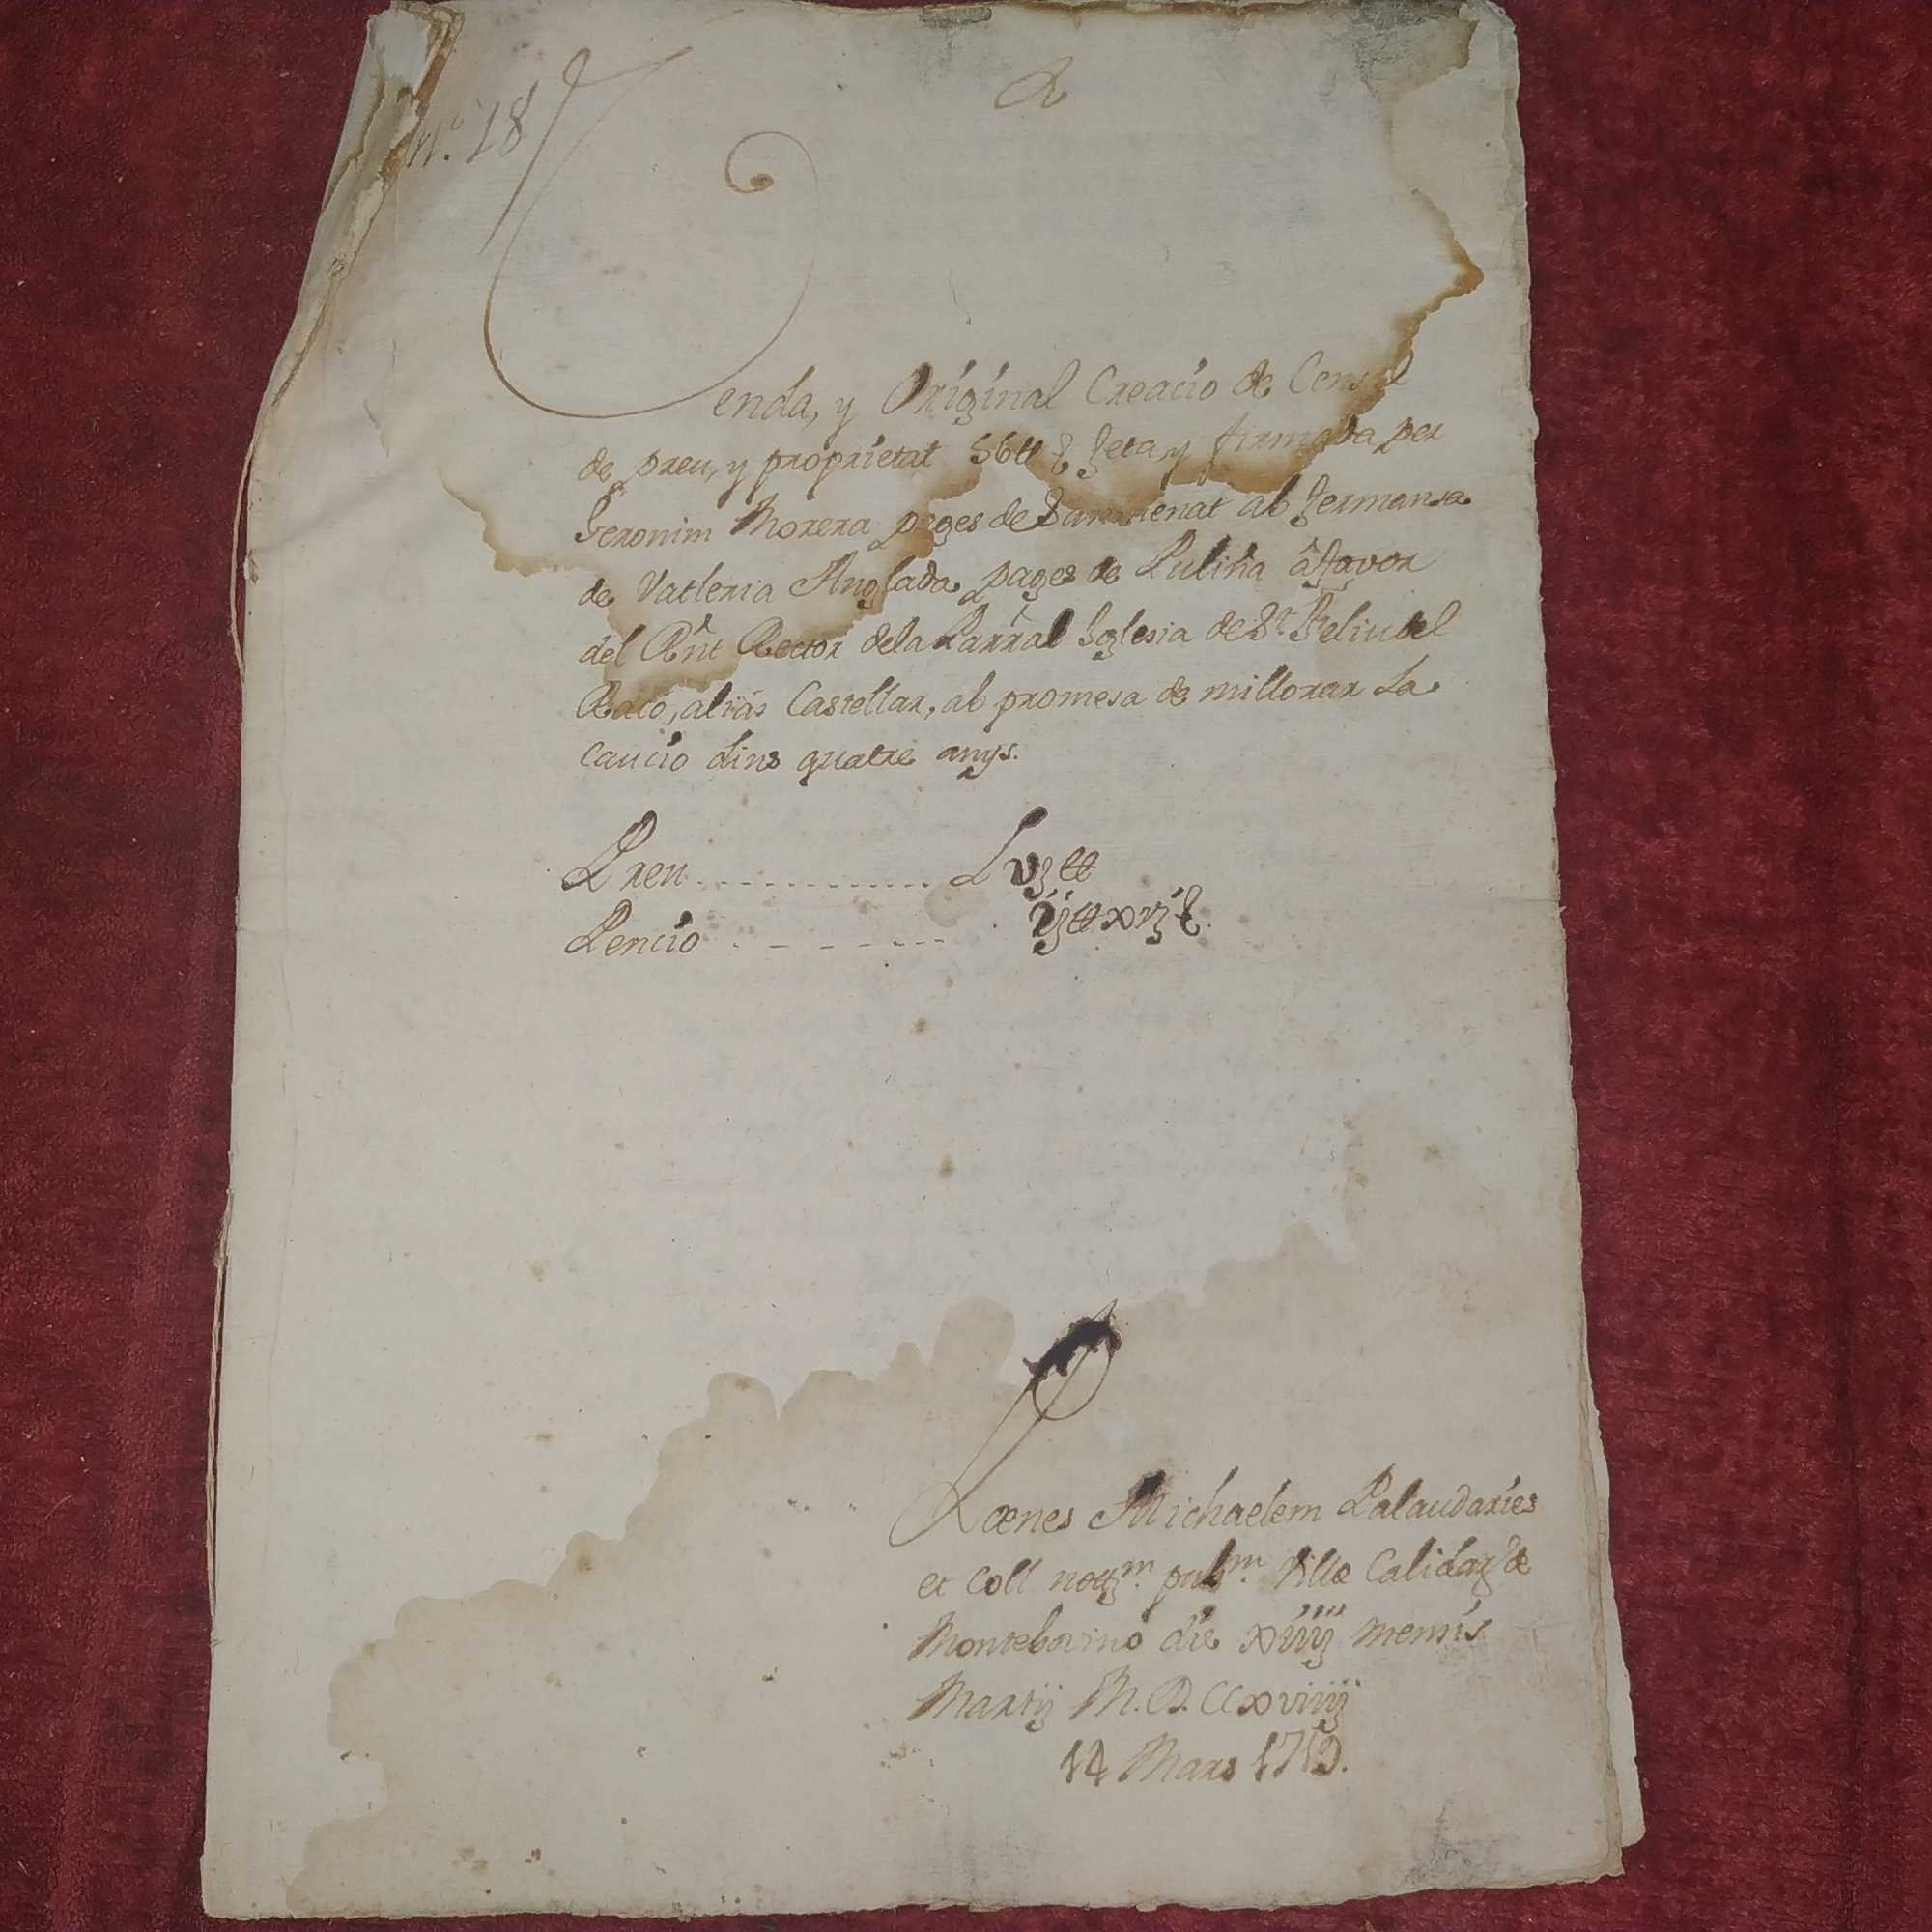 A
N.º 18
Venda, y Original Creacio de Censal
de preu, y proprietat 56 ll feta, y firmada per
Geronim Morera pages de Sanmenat ab fermansa
de Vatleria Anglada pages de Puliña â favor
del Rñt Rector dela Parral Iglesia de St. Feliu del
Raco, alias Castellar, ab promesa de millorar La
caucio dins quatre anys.
Preu ............ Lvj ll
Pencio ........ ij ll xvj ß.
Pænes Michaelem Palaudaries
et Coll nottm. pubm. Villæ Calidar de
Montebovino die xiiij mensis
Martij M.D.CCxviiij
14 Mars 1719.